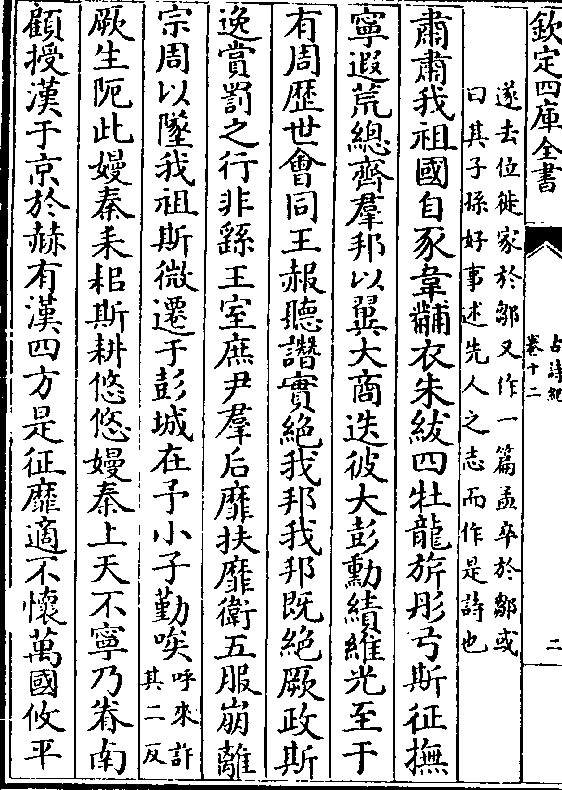 欽定四庫全書
古詩紀
卷十二
二
遂去位徙家於鄒又作一篇孟卒於鄒或
曰其子孫好事述先人之志而作是詩也
肅肅我祖國自豕韋黼衣朱紱四牡龍旂彤弓斯征撫
寧遐荒總齊羣邦以翼大商迭彼大彭勳績維光至于
有周歴世會同王赧聽譖實絶我邦我邦既絶厥政斯
逸賞罰之行非繇王室庶尹羣后靡扶靡衛五服崩離
宗周以墜我祖斯微遷于彭城在予小子勤唉呼來反其二許
厥生阨此嫚秦耒耜斯耕悠悠嫚秦上天不寧乃眷南
顧授漢于京於赫有漢四方是征靡適不懷萬國攸平